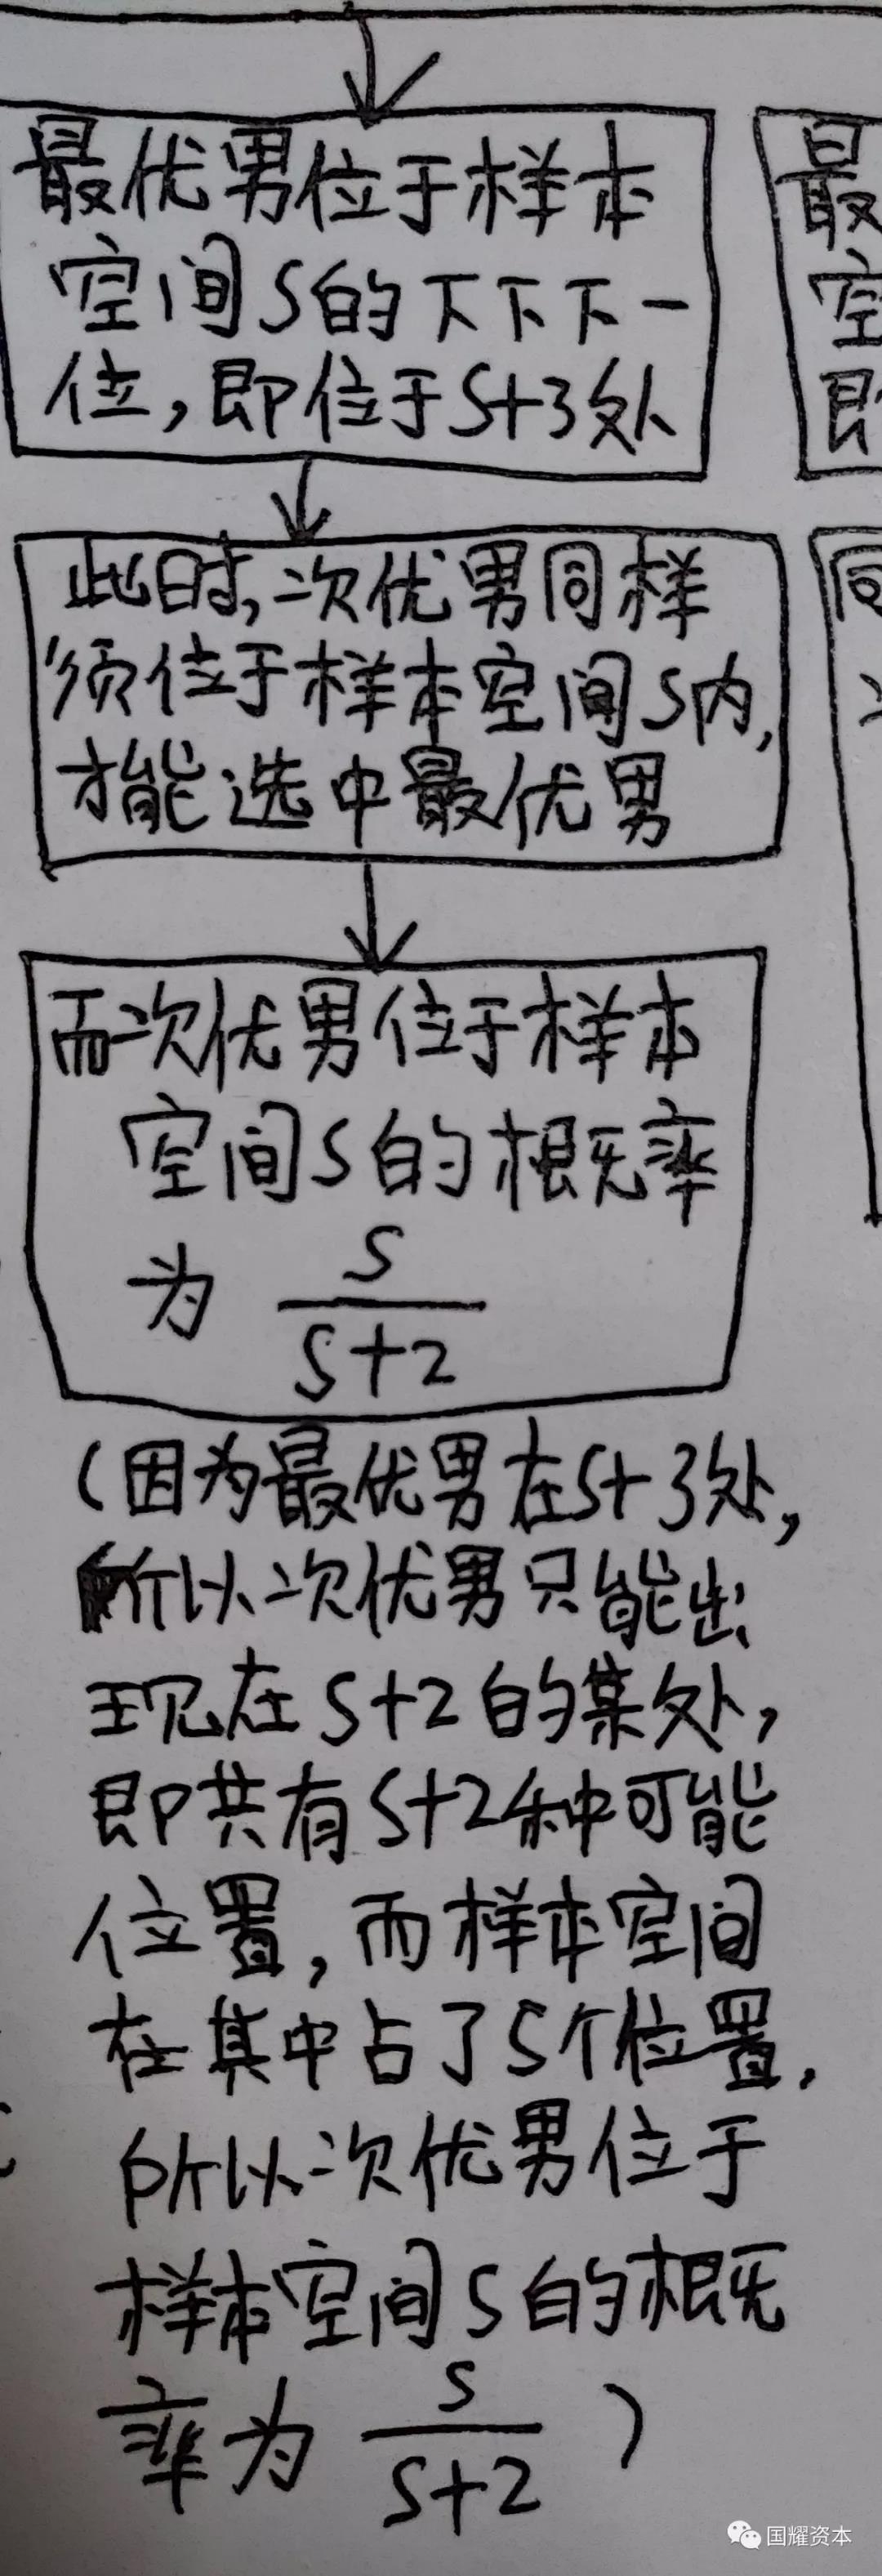 最优男位于样本
空间S的下下下一
位,即位于S+3处
此时,次优男同样
须位于样本空间S内,
才能选中最优男
而次优男位于样本
空间S的概率
为 S/(S+2)
(因为最优男在S+3处,
所以次优男只能出
现在S+2的某处,
即共有S+2种可能
位置,而样本空间
在其中占了S个位置,
所以次优男位于
样本空间S的概
率为 S/(S+2) )
最
空
即
同
国耀资本